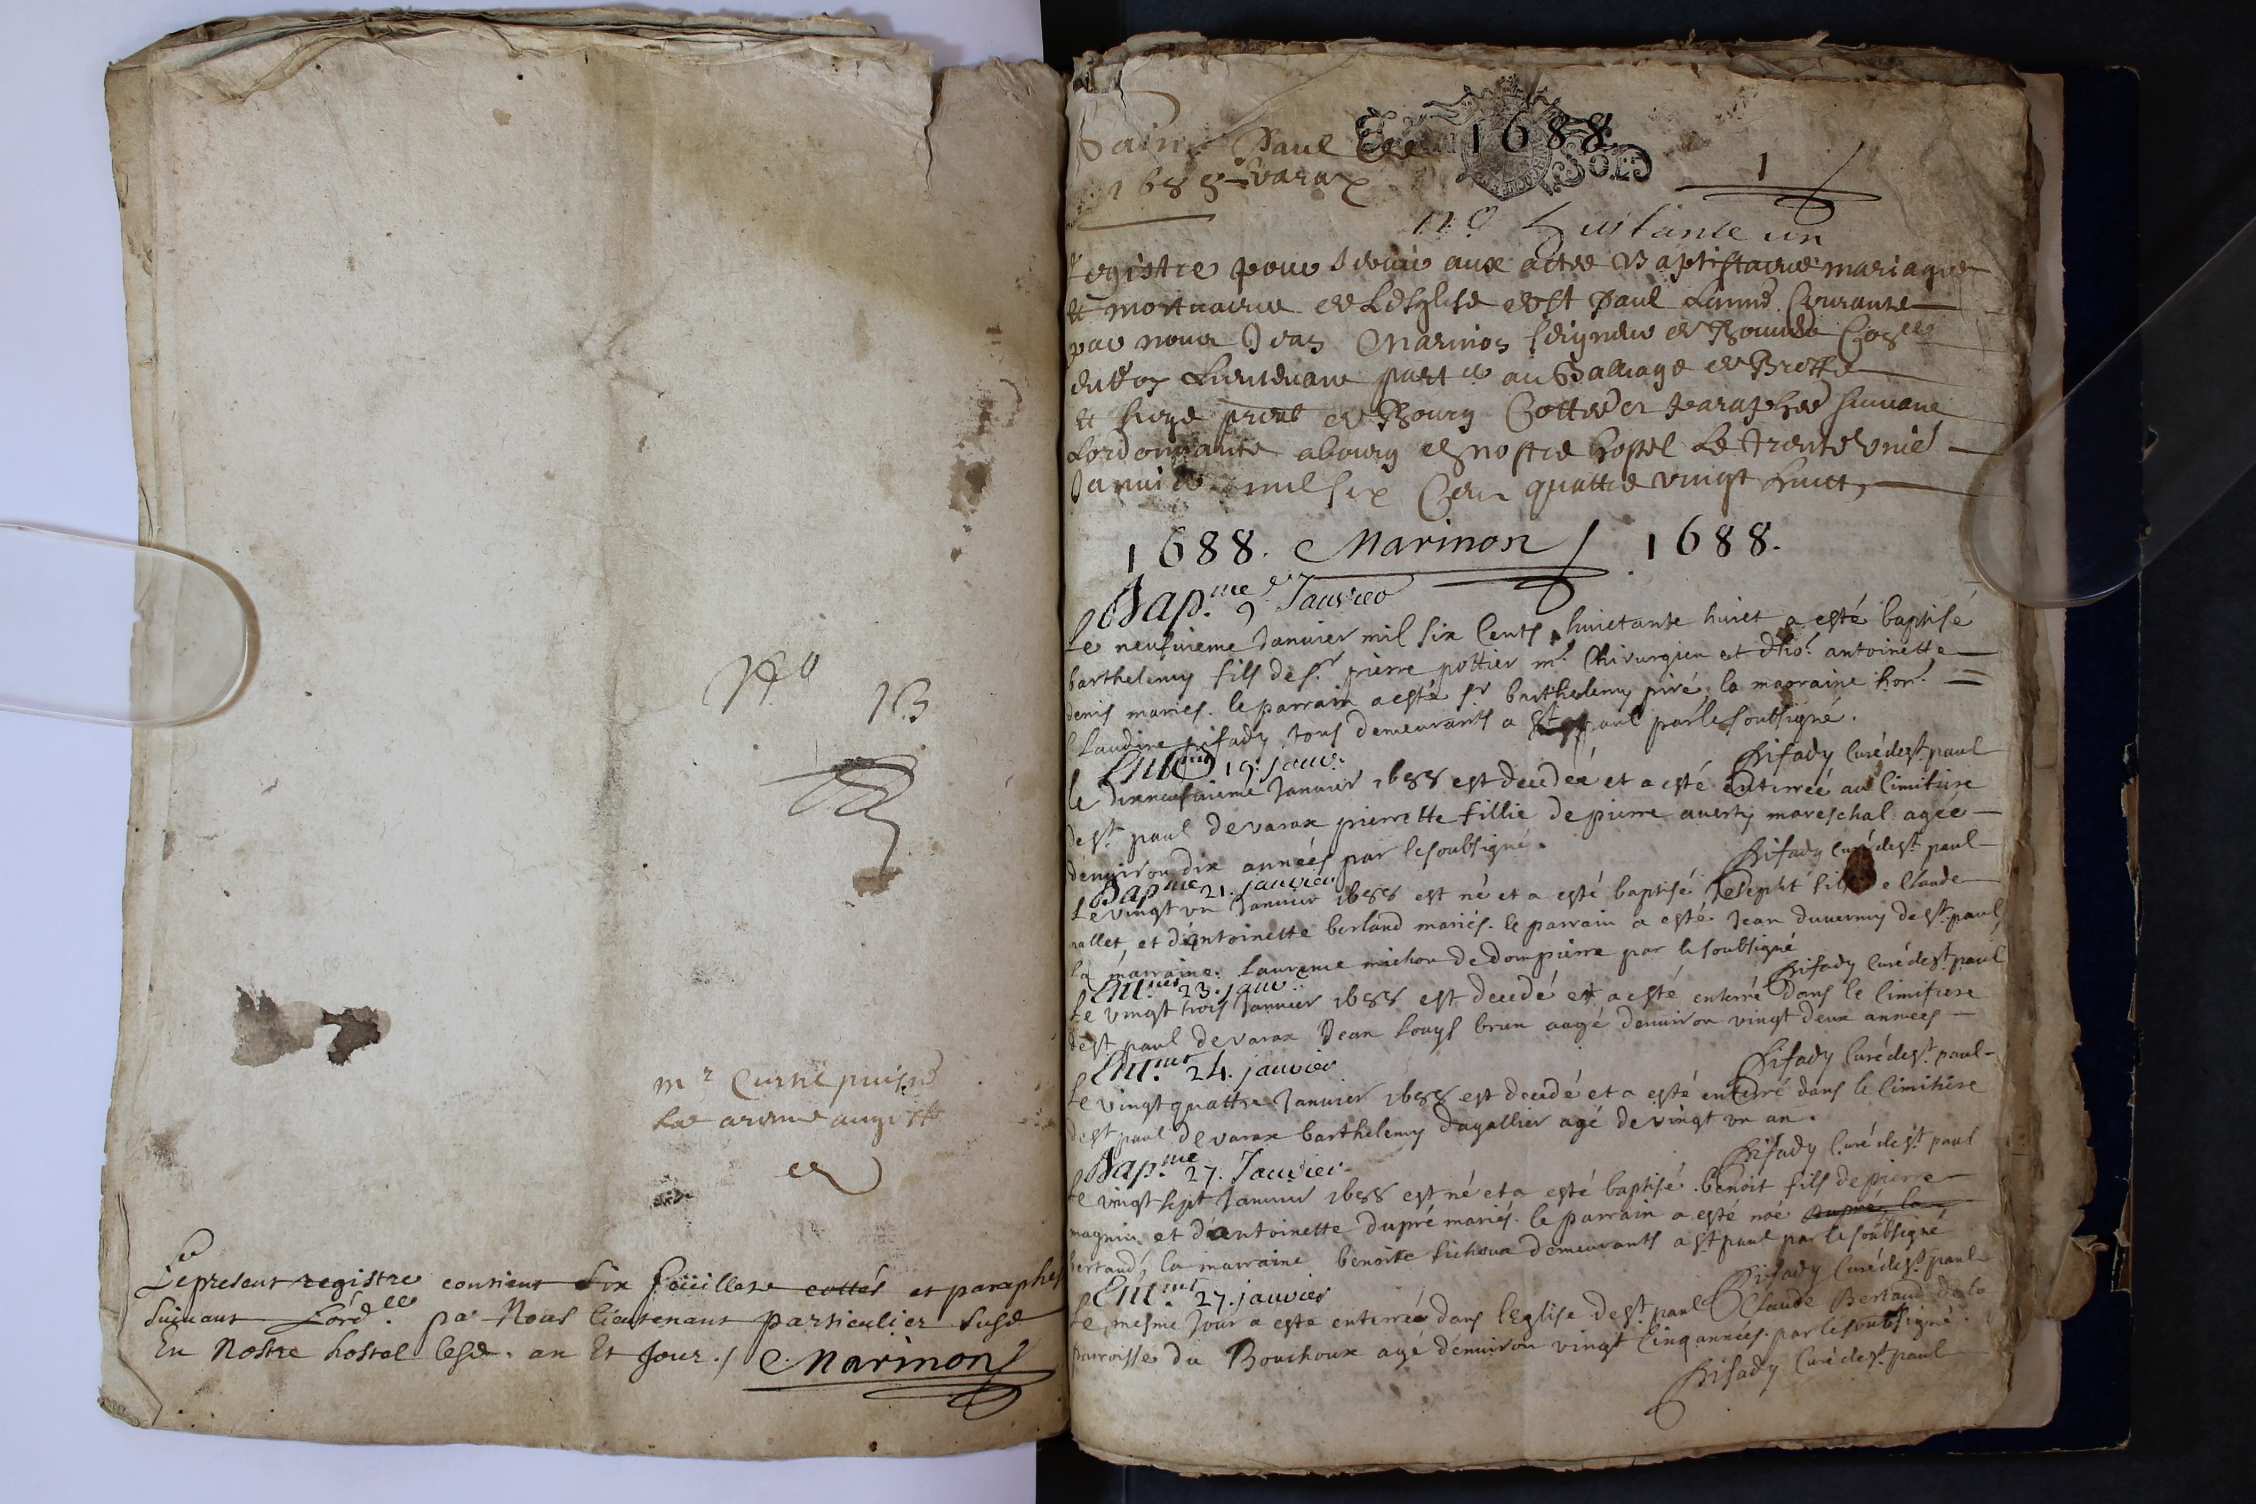 Le present registre contient six feüillets cottés et paraphés
suivant l'ord.ce par Nous lieutenant particulier susd
En Nostre hostel lesd. an et jour./ Marinon
Saint Paul de 1688.
1688 Varax SOLS
1
No huitante un
Registre pour servir aux actes Baptistaires mariages
et mortuaires de Lesglise de St Paul Lannée Courante
par nous Jean Marinon seigneur de
du Roy Lieutenant part.er au Balliage de Bresse
et siege de Bourg Cotté et paraphé suivant
Lordonnance a bourg en nostre hostel Le trente unie
Janvier mil six Cent quattre vingt huict
1688. Marinon 1688.
Bap.me 9 Janvier
Le neufuieme Janvier mil six Cents huictante huict a esté baptisé
barthelemy fils de sr. pierre pottier mr. Chirurgien et antoinette
denis mariés. le parrain a esté sr barthelemy piré, la marraine hon.
Claudine Fifady, tous demeurants a St paul par le soubsigné.
Fifady Curé de st. paul
Ent. 19. janv.
le dixneufuieme Janvier 1688 est decedée et a esté enterrée au Cimitiere
de st. paul de varax pierrette fillie de pierre mareschal agee
denuiron dix années par le soubsigné.
Fifady Curé de st. paul
Bap.me 21. janvier
Le vingt vn Janvier 1688 est né et a esté baptisé Josepht fils de Claude
mallet, et d'antoinette berland mariés. le parrain a esté Jean duverney de st. paul,
la marraine. Laurence michon de dompierre par le soubsigné
Fifady Curé de st. paul
Ent. 23. janv.
Le vingt trois Janvier 1688 est decedé et a esté enterré dans le Cimitiere
de st. paul de varax Jean Louys brun aagé denuiron vingt deux années
Fifady Curé de st. paul
Ent. 24. janvier
Le vingt quattre Janvier 1688 est decedé et a esté enterré dans le Cimitiere
de st paul de varax barthelemy dagallier agé de vingt vn an.
Fifady Curé de st. paul
Bap.me 27. Janvier
Le vingt sept Janvier 1688 est né et a esté baptisé benoit fils de pierre
magnin et d'antoinette dupré mariés. le parrain a esté noé dupré, la
bertaud, la marraine benoite demeurants a st paul par le soubsigné
Fifady Curé de st. paul
Ent. 27. janvier
Le mesme Jour a este enterrée dans l'Eglise de st. paul Claude Bertaud de la
parroisse du Bouchoux agé denuiron vingt Cinq années. par le soubsigné.
Fifady Curé de st. paul